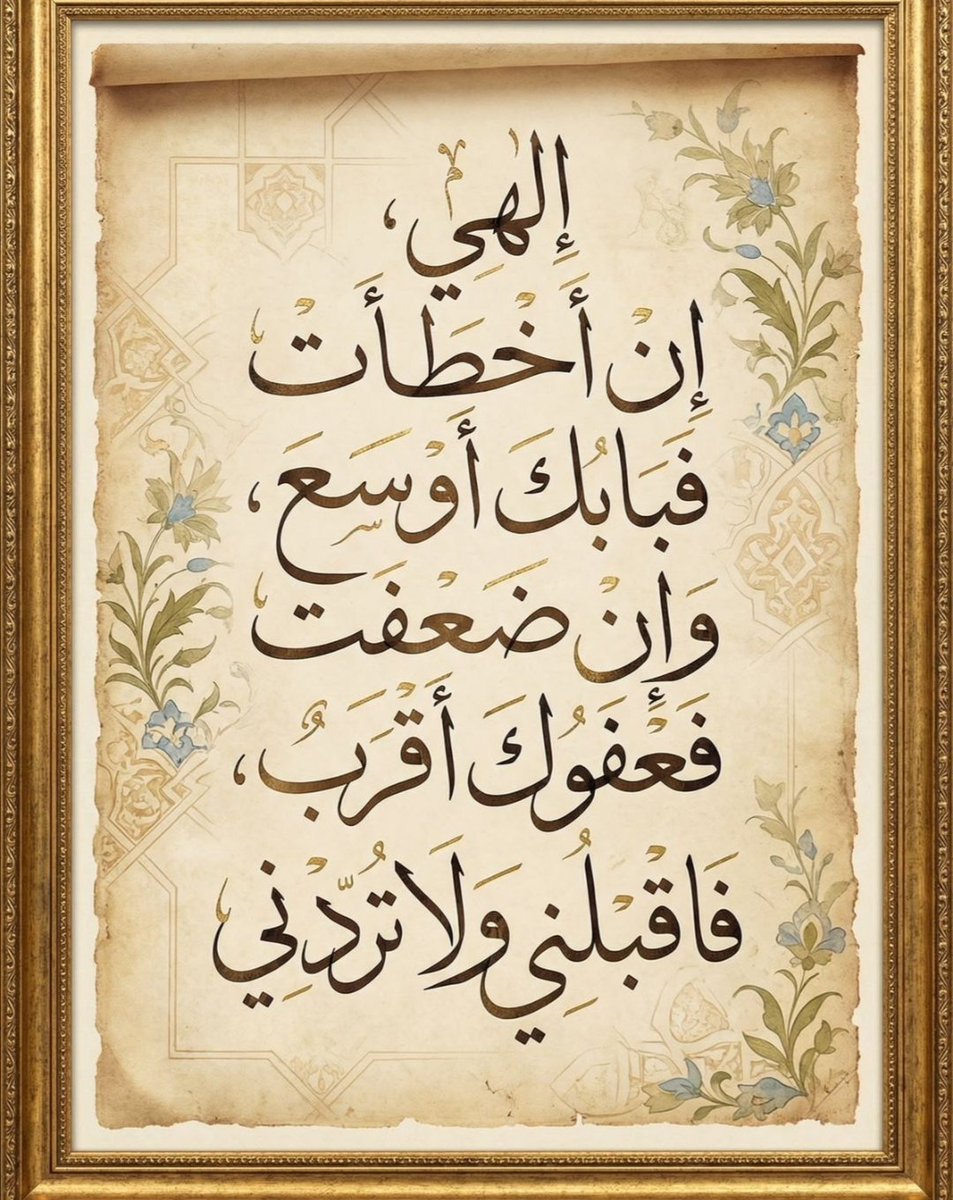 إِلهِي،
إِنْ أَخْطَأَت
فَبَابُكَ أَوْسَعَ،
وَإنْ ضَعَفَت
فَعْفَوُكَ أَقْرَبُ،
فَاقْبَلُنِي وَلَا تُرُدِّنِي